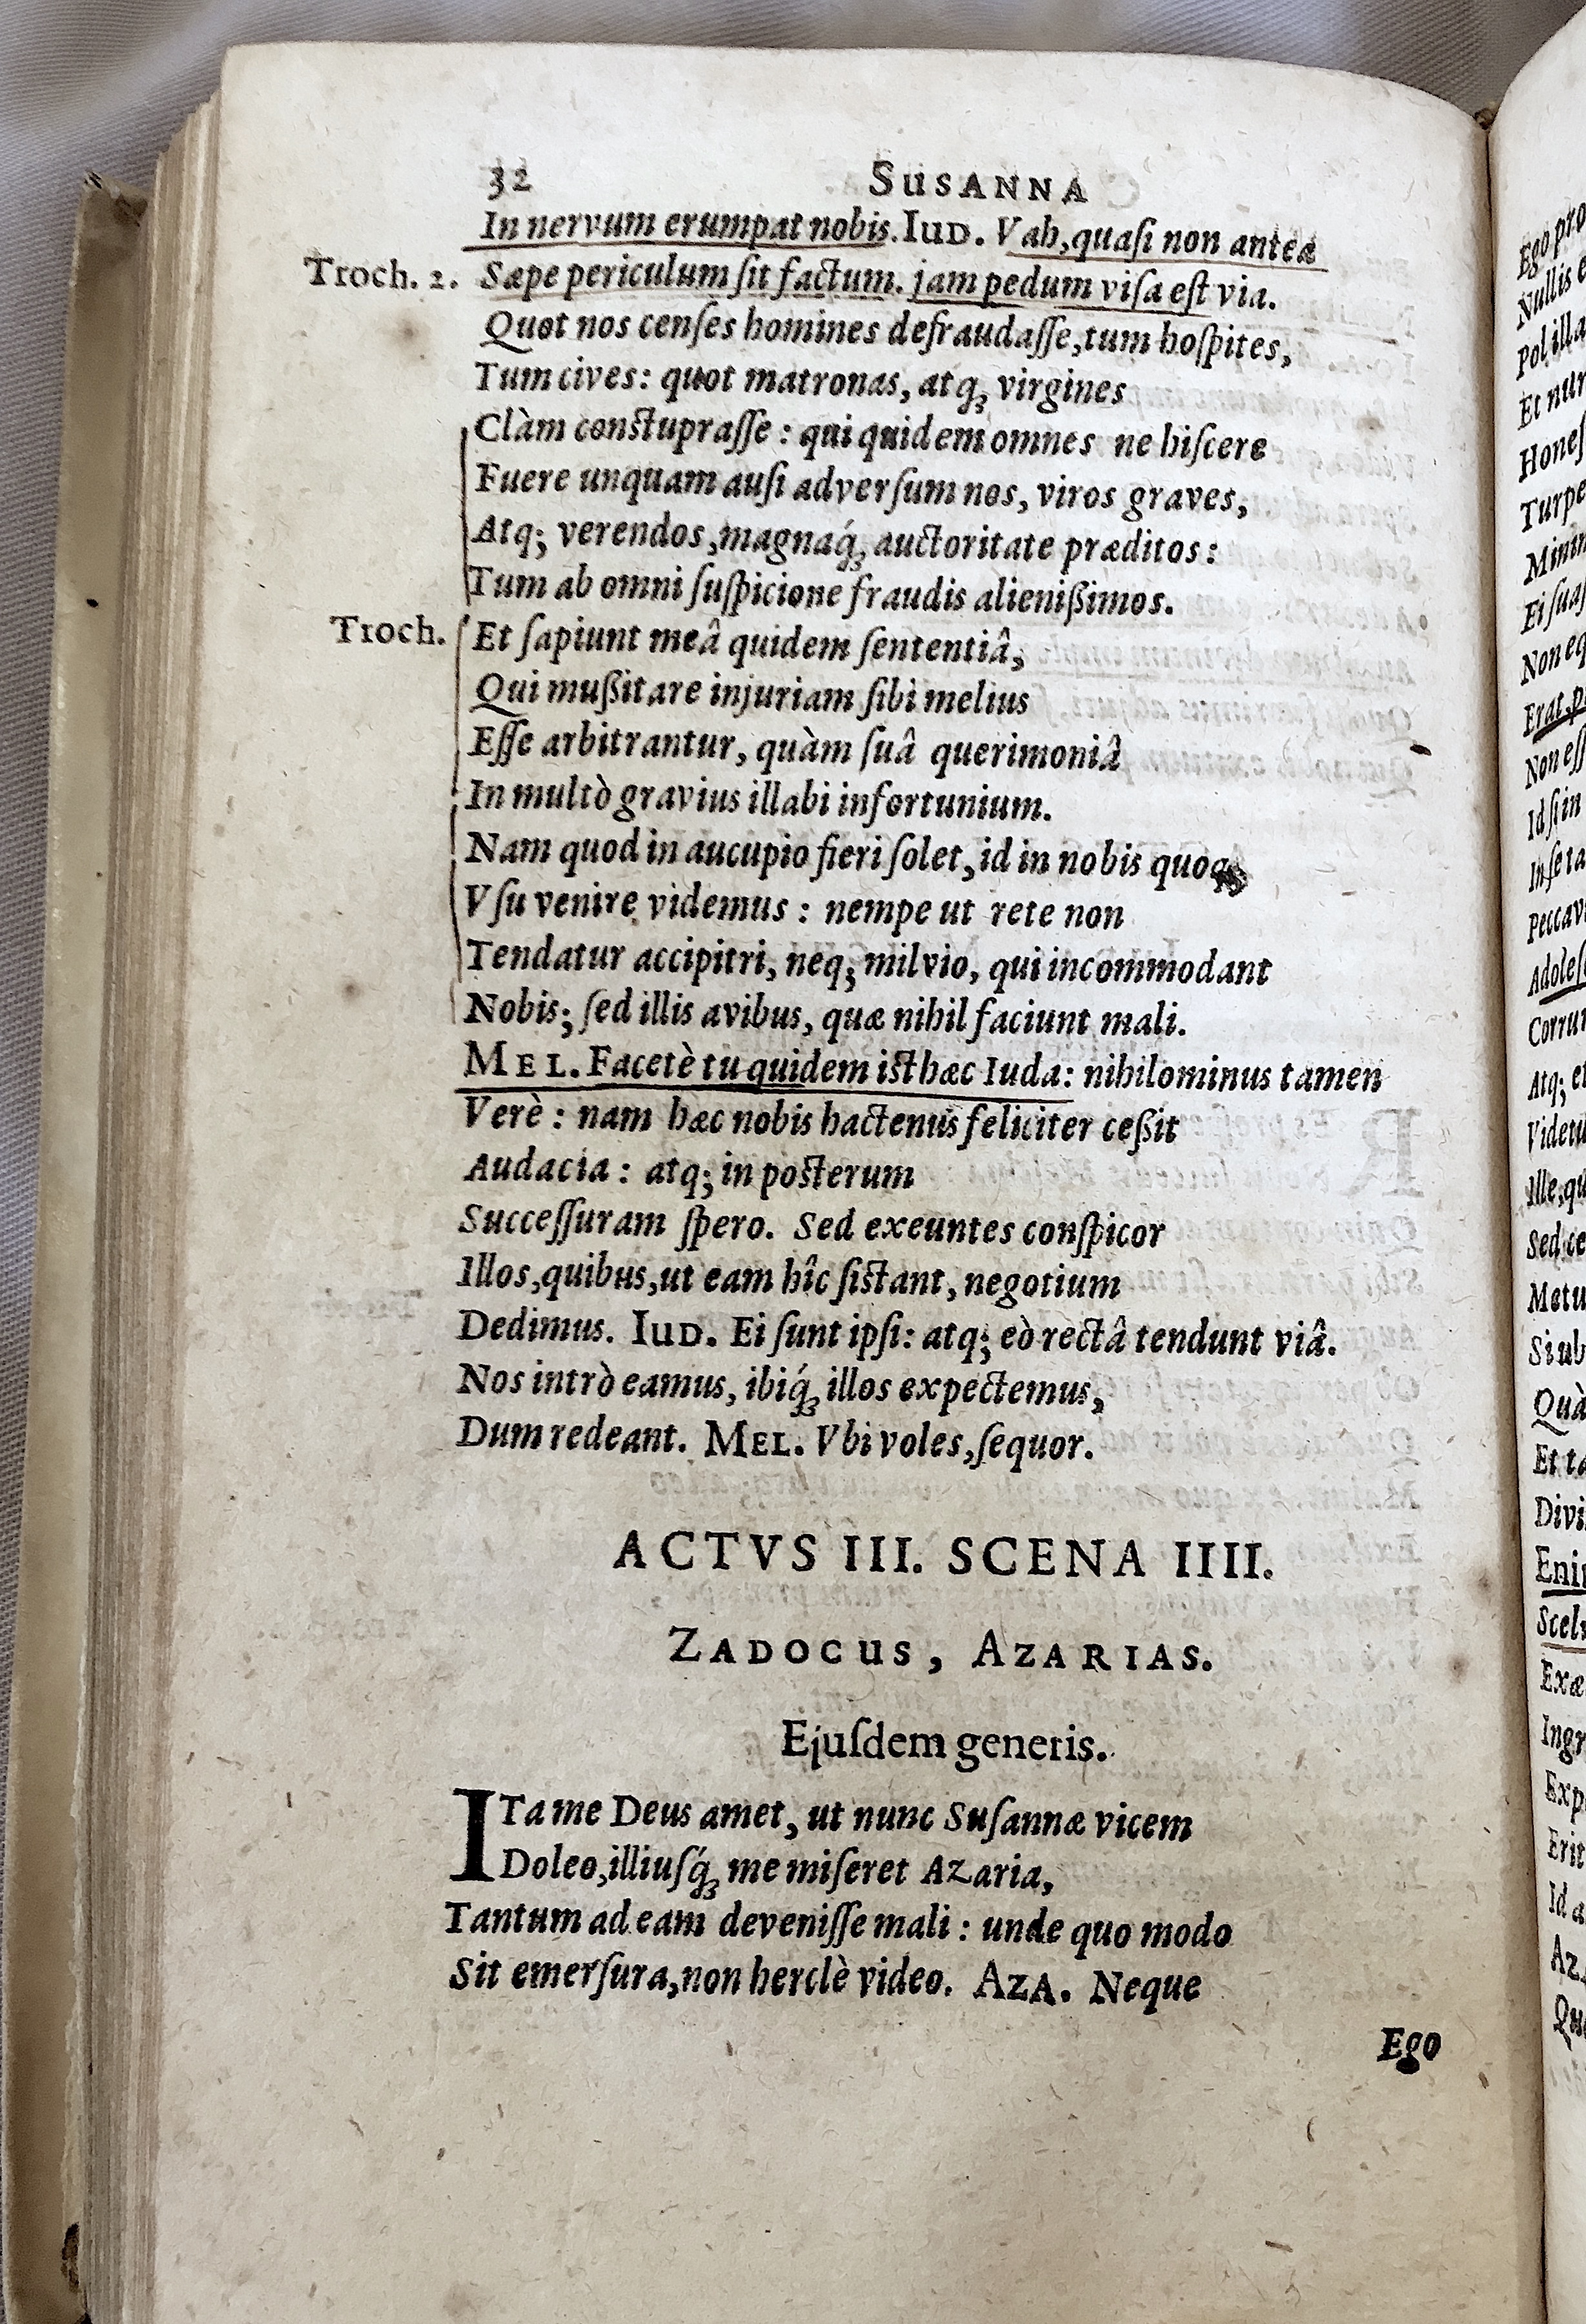 32 SUSANNA
In nervum erumpat nobis. IUD. Vah, quaſi non anteà
Troch. 2. Sæpe periculum ſit factum. jam pedum viſa eſt via.
Quot nos cenſes homines defraudaſſe, tum hoſpites,
Tum cives: quot matronas, atq; virgines
Clàm conſtupraſſe: qui quidem omnes ne hiſcere
Fuere unquam auſi adverſum nos, viros graves,
Atq; verendos, magnaq́; auctoritate præditos:
Tum ab omni ſuſpicione fraudis alienißimos.
Troch. Et ſapiunt meâ quidem ſententiâ,
Qui mußitare injuriam ſibi melius
Eſſe arbitrantur, quàm ſuâ querimoniâ
In multò gravius illabi infortunium.
Nam quod in aucupio fieri ſolet, id in nobis quoq;
Vſu venire videmus: nempe ut rete non
Tendatur accipitri, neq; milvio, qui incommodant
Nobis; ſed illis avibus, quæ nihil faciunt mali.
MEL. Facetè tu quidem iſthæc Iuda: nihilominus tamen
Verè: nam hæc nobis hactenus feliciter ceßit
Audacia: atq; in poſterum
Succeſſuram ſpero. Sed exeuntes conſpicor
Illos, quibus, ut eam hîc ſiſtant, negotium
Dedimus. IUD. Ei ſunt ipſi: atq; eò rectâ tendunt viâ.
Nos intrò eamus, ibiq́; illos expectemus,
Dum redeant. MEL. Vbi voles, ſequor.
ACTVS III. SCENA IIII.
ZADOCUS, AZARIAS.
Ejuſdem generis.
ITa me Deus amet, ut nunc Suſannæ vicem
Doleo, illiuſq́; me miſeret Azaria,
Tantum ad eam deveniſſe mali: unde quo modo
Sit emerſura, non herclè video. AZA. Neque
Ego
Ego pro
Nullis
Pol illa
Et nur
Honeſ
Turpe
Minim
Ei ſuaſ
Non eq
Erat, p
Non eſſ
Id ſi in
In ſe ta
Peccav
Adoleſ
Corru
Atq; et
Videtu
Ille, qu
Sed ce
Metu
Si ub
Quà
Et ta
Divi
Eni
Scel
Exæ
Ingr
Exp
Erit
Id a
Az